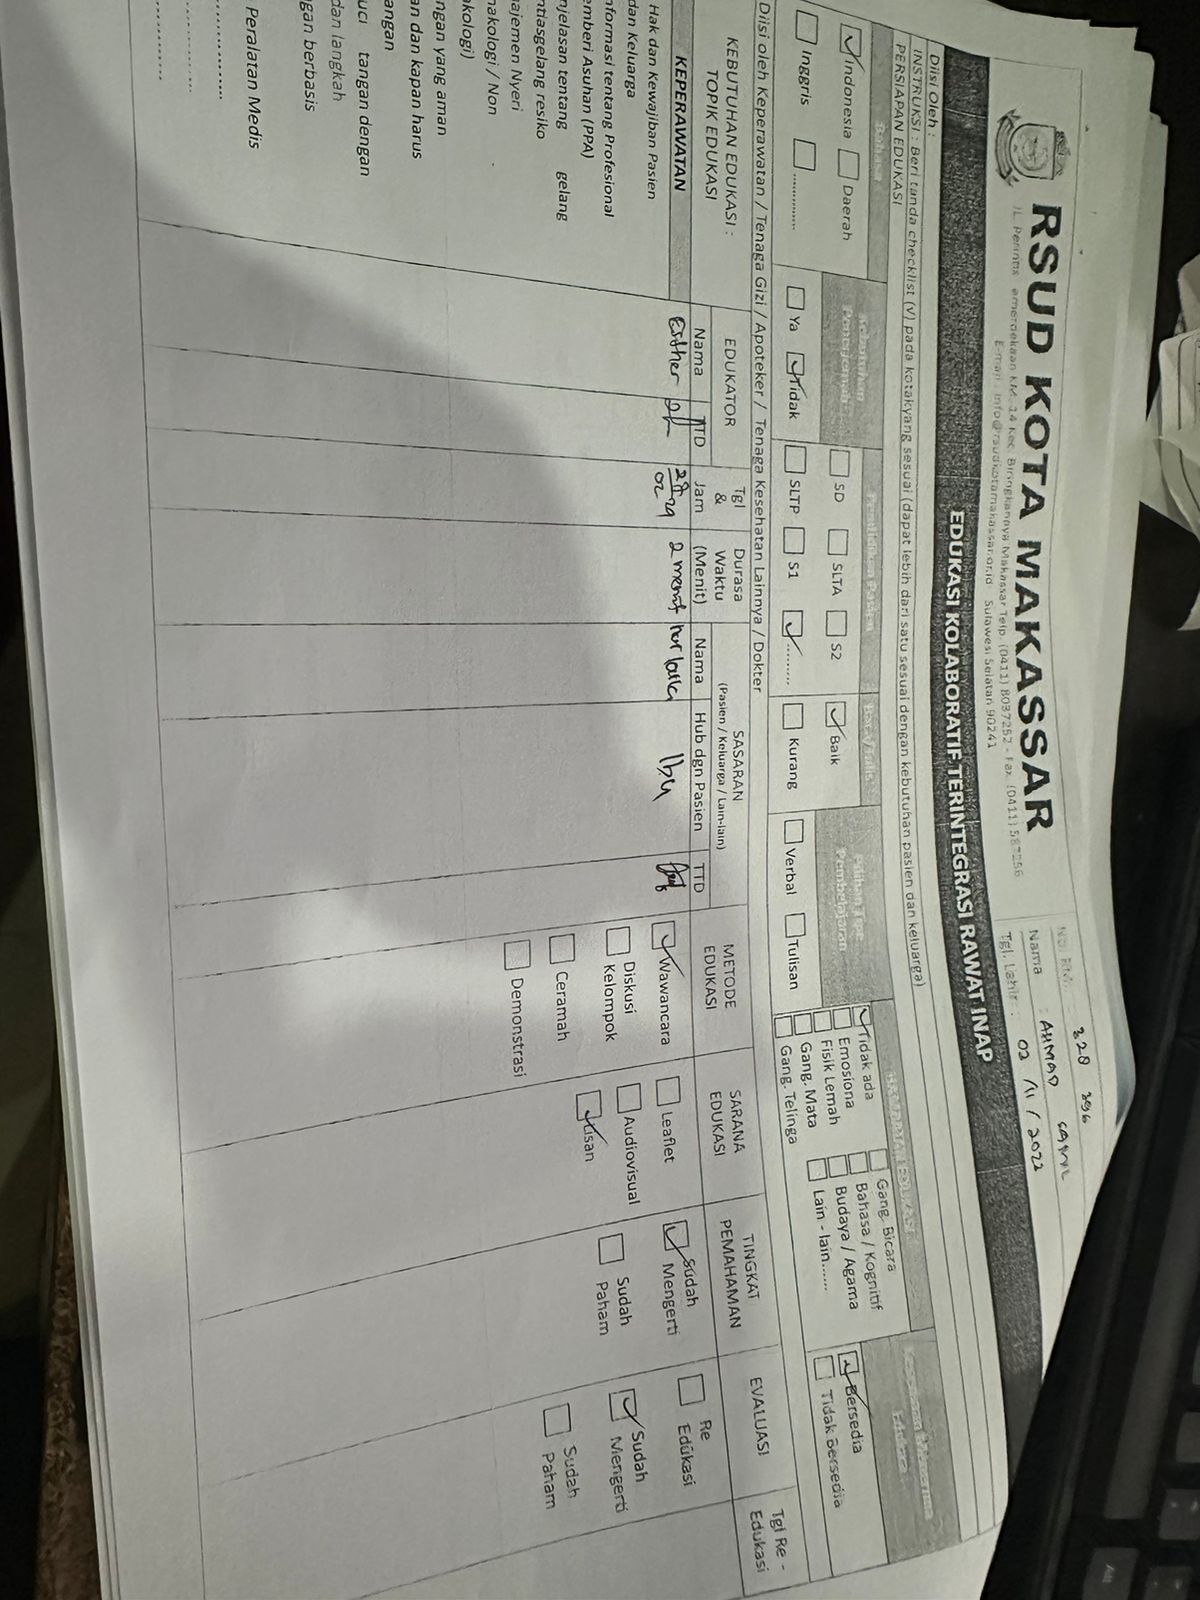 RSUD KOTA MAKASSAR
JL. Perintis emerdekaan KM. 14 Kec. Biringkannya Makassar Telp. (0411) 8037252 - Fax. (0411) 587256
E-mail : info@rsudkotamakassar.or.id Sulawesi Selatan 90241
No. RM: 320 396
Nama : AHMAD
Tgl. Lahir : 02 /11 / 2022
EDUKASI KOLABORATIF TERINTEGRASI RAWAT INAP
Diisi Oleh :
INSTRUKSI : Beri tanda checklist (√) pada kotakyang sesuai (dapat lebih dari satu sesuai dengan kebutuhan pasien dan keluarga)
PERSIAPAN EDUKASI
Bahasa
Indonesia Daerah
Inggris .............
Kebutuhan
Penerjemah
Ya Tidak
Pendidikan Pasien
SD SLTA S2
SLTP S1 .........
Baca/Tulis
Baik
Kurang
Pilihan Tipe
Pembelajaran
Verbal Tulisan
HAMBATAN EDUKASI :
Tidak ada
Emosiona
Fisik Lemah
Gang. Mata
Gang. Telinga
Gang. Bicara
Bahasa / Kognitif
Budaya / Agama
Lain - lain......
Kesediaan Menerima
Edukasi :
Bersedia
Tidak Bersedia
Diisi oleh Keperawatan / Tenaga Gizi / Apoteker / Tenaga Kesehatan Lainnya / Dokter
KEBUTUHAN EDUKASI :
TOPIK EDUKASI
EDUKATOR
Nama TTD
Tgl
&
Jam
Durasa
Waktu
(Menit)
SASARAN
(Pasien / Keluarga / Lain-lain)
Nama Hub dgn Pasien TTD
METODE
EDUKASI
SARANA
EDUKASI
TINGKAT
PEMAHAMAN
EVALUASI
Tgl Re -
Edukasi
KEPERAWATAN
Esther
2 menit
Ibu
Hak dan Kewajiban Pasien
dan Keluarga
nformasi tentang Profesional
emberi Asuhan (PPA)
njelasan tentang gelang
ntiasgelang resiko
ajemen Nyeri
nakologi / Non -
akologi)
ngan yang aman
an dan kapan harus
angan
uci tangan dengan
dan langkah
gan berbasis
Peralatan Medis
..................
.................
...............
Wawancara
Diskusi
Kelompok
Ceramah
Demonstrasi
Leaflet
Audiovisual
Lisan
Sudah
Mengerti
Sudah
Paham
Re
Edukasi
Sudah
Mengerti
Sudah
Paham
Alt